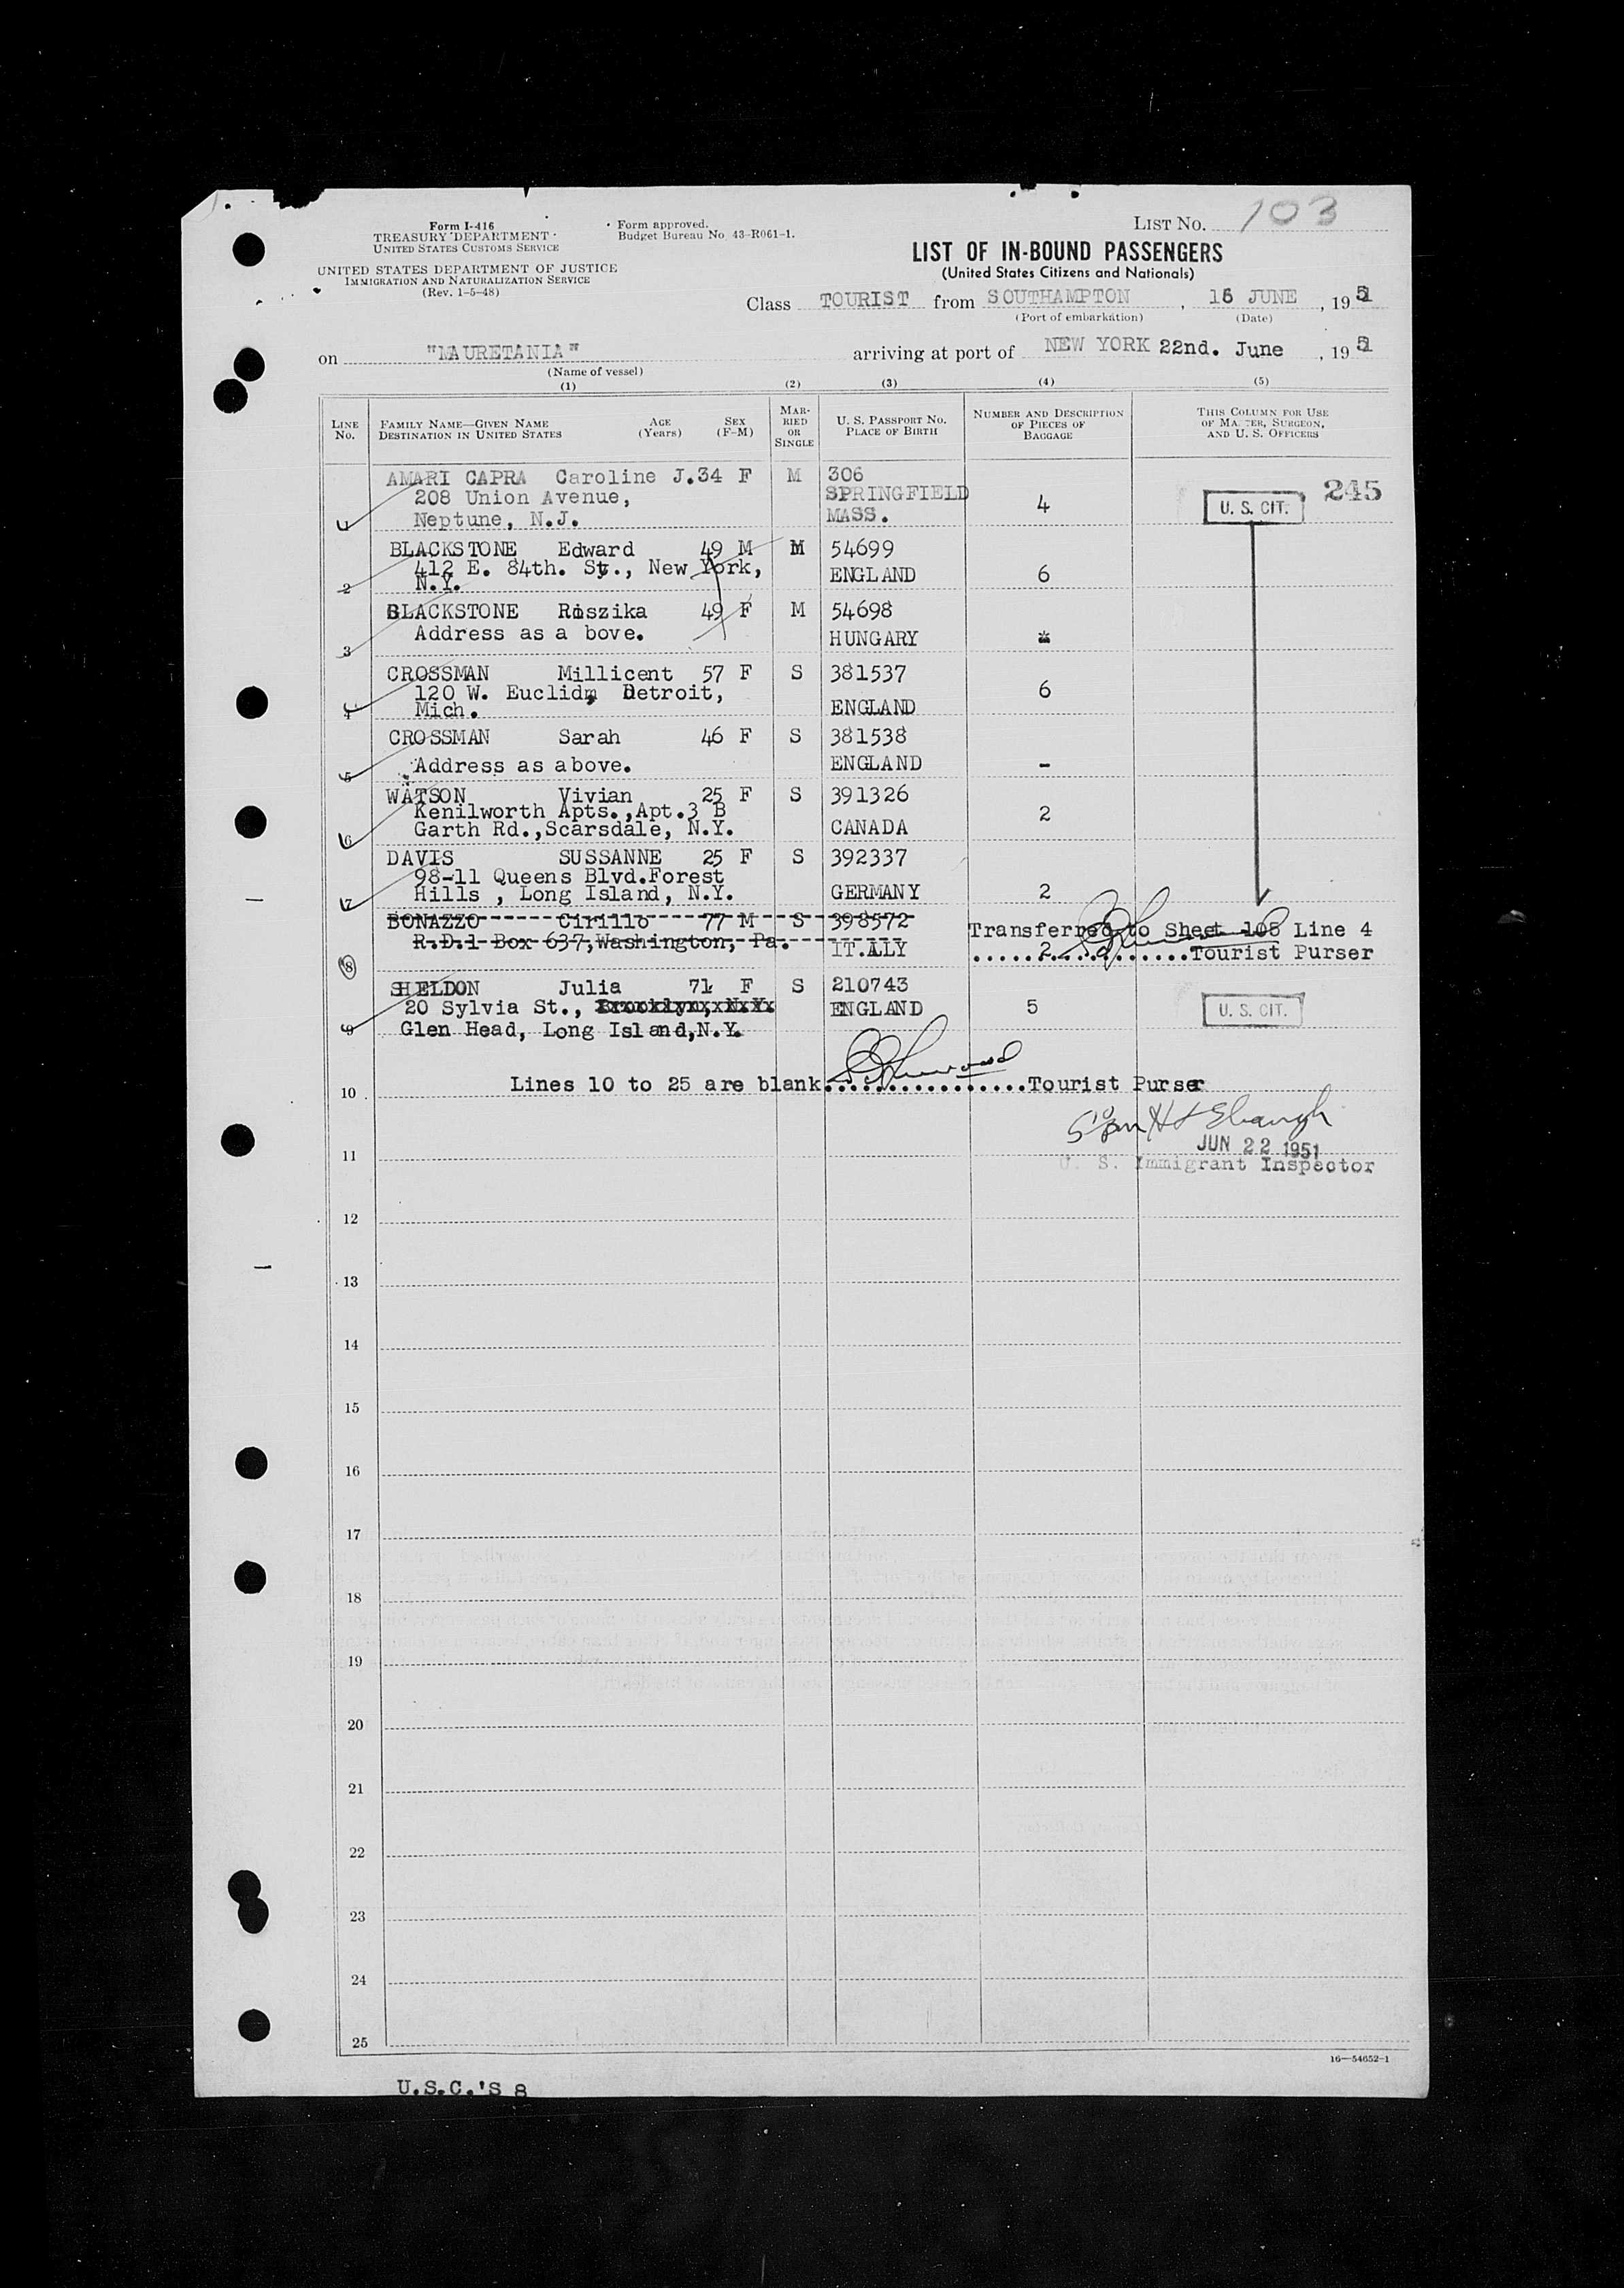 LIST NO. 103
Form I-416
TREASURY DEPARTMENT
UNITED STATES CUSTOMS SERVICE
Form approved.
Budget Bureau No. 43-R061-1.
UNITED STATES DEPARTMENT OF JUSTICE
IMMIGRATION AND NATURALIZATION SERVICE
(Rev. 1-5-48)
LIST OF IN-BOUND PASSENGERS
(United States Citizens and Nationals)
Class TOURIST from SOUTHAMPTON, 16 JUNE, 1951
(Port of embarkation) (Date)
on "MAURETANIA" arriving at port of NEW YORK 22nd. June, 1951
(Name of vessel)
(1) (2) (3) (4) (5)
LINE NO.
FAMILY NAME—GIVEN NAME AGE SEX
DESTINATION IN UNITED STATES (Years) (F-M)
MAR-
RIED
OR
SINGLE
U. S. PASSPORT NO.
PLACE OF BIRTH
NUMBER AND DESCRIPTION
OF PIECES OF
BAGGAGE
THIS COLUMN FOR USE
OF MASTER, SURGEON,
AND U. S. OFFICERS
AMARI CAPRA Caroline J. 34 F M 306
208 Union Avenue, SPRINGFIELD 4 U. S. CIT. 245
1 Neptune, N.J. MASS.
BLACKSTONE Edward 49 M M 54699
412 E. 84th. St., New York, ENGLAND 6
2 N.Y.
BLACKSTONE Roszika 49 F M 54698
Address as a bove. HUNGARY
3
CROSSMAN Millicent 57 F S 381537
120 W. Euclid, Detroit, 6
4 Mich. ENGLAND
CROSSMAN Sarah 46 F S 381538
5 Address as above. ENGLAND -
WATSON Vivian 25 F S 391326
Kenilworth Apts.,Apt.3 B 2
6 Garth Rd.,Scarsdale, N.Y. CANADA
DAVIS SUSSANNE 25 F S 392337
98-11 Queens Blvd.Forest
7 Hills , Long Island, N.Y. GERMANY 2
BONAZZO Cirillo 77 M S 398572 Transferred to Sheet 108 Line 4
R.D.1 Box 637,Washington, Pa. IT.ALY 2 Tourist Purser
8
SHELDON Julia 71 F S 210743
20 Sylvia St., Brooklyn, N.Y. ENGLAND 5 U. S. CIT.
9 Glen Head, Long Island,N.Y.
Lines 10 to 25 are blank................Tourist Purser
10
JUN 22 1951
11
U. S. Immigrant Inspector
12
13
14
15
16
17
18
19
20
21
22
23
24
25
16—54652-1
U.S.C.'S 8